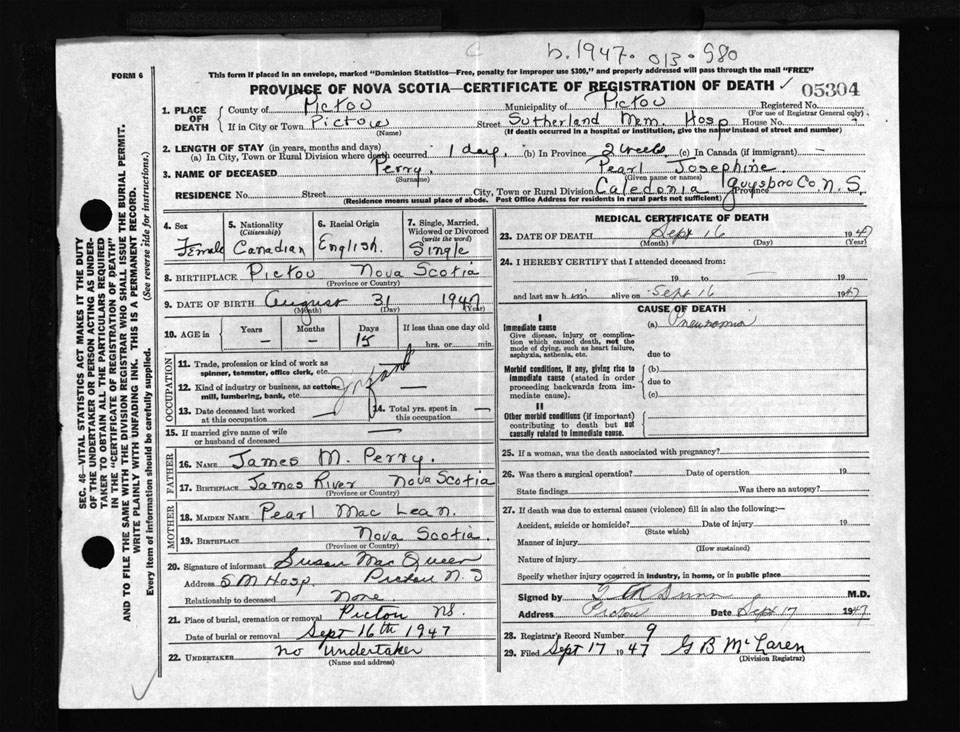 b. 1947-013-980
FORM 6
This form if placed in an envelope, marked "Dominion Statistics—Free, penalty for improper use $300," and properly addressed will pass through the mail "FREE"
PROVINCE OF NOVA SCOTIA—CERTIFICATE OF REGISTRATION OF DEATH ✓ 05304
1. PLACE OF DEATH
County of Pictou Municipality of Pictou Registered No.
(For use of Registrar General only)
If in City or Town Pictou Street Sutherland Mem. Hosp House No.
(Name) (If death occurred in a hospital or institution, give the name instead of street and number)
2. LENGTH OF STAY (in years, months and days)
(a) In City, Town or Rural Division where death occurred 1 day. (b) In Province 2 weeks (c) In Canada (if immigrant) —
3. NAME OF DECEASED Perry Pearl Josephine
(Surname) (Given name or names)
RESIDENCE No. Street City, Town or Rural Division Caledonia Guysboro Co. N.S. Province
(Residence means usual place of abode. Post Office Address for residents in rural parts not sufficient)
4. Sex
Female
5. Nationality
(Citizenship)
Canadian
6. Racial Origin
English.
7. Single, Married, Widowed or Divorced
(write the word)
Single
8. BIRTHPLACE Pictou Nova Scotia
(Province or Country)
9. DATE OF BIRTH August 31 1947
(Month) (Day) (Year)
10. AGE in
Years Months Days If less than one day old
— — 15 hrs. or min.
OCCUPATION
11. Trade, profession or kind of work as spinner, teamster, office clerk, etc.
Infant
12. Kind of industry or business, as cotton mill, lumbering, bank, etc. —
13. Date deceased last worked at this occupation —
14. Total yrs. spent in this occupation —
15. If married give name of wife or husband of deceased —
FATHER
16. NAME James M. Perry.
17. BIRTHPLACE James River Nova Scotia
(Province or Country)
MOTHER
18. MAIDEN NAME Pearl Mac Lean.
19. BIRTHPLACE Nova Scotia.
(Province or Country)
20. Signature of informant Susan Mac Queen
Address S M Hosp. Pictou N.S
Relationship to deceased None.
21. Place of burial, cremation or removal Pictou NS.
Date of burial or removal Sept 16th 1947
22. UNDERTAKER no Undertaker
(Name and address)
MEDICAL CERTIFICATE OF DEATH
23. DATE OF DEATH Sept 16 1947
(Month) (Day) (Year)
24. I HEREBY CERTIFY that I attended deceased from:
19 to — 19
and last saw him alive on Sept 16 1947
CAUSE OF DEATH
I
Immediate cause (a) Pneumonia
Give disease, injury or complication which caused death, not the mode of dying, such as heart failure, asphyxia, asthenia, etc.
due to
Morbid conditions, if any, giving rise to immediate cause (stated in order proceeding backwards from immediate cause).
(b)
due to
(c)
II
Other morbid conditions (if important) contributing to death but not causally related to immediate cause.
25. If a woman, was the death associated with pregnancy?
26. Was there a surgical operation? Date of operation 19
State findings Was there an autopsy?
27. If death was due to external causes (violence) fill in also the following:—
Accident, suicide or homicide? Date of injury 19
(State which)
Manner of injury
(How sustained)
Nature of injury
Specify whether injury occurred in industry, in home, or in public place
Signed by M.D.
Address Pictou Date Sept 17 1947
28. Registrar's Record Number 9
29. Filed Sept 17 1947 G B McLaren
(Division Registrar)
SEC. 46—VITAL STATISTICS ACT MAKES IT THE DUTY
OF THE UNDERTAKER OR PERSON ACTING AS UNDER-
TAKER TO OBTAIN ALL THE PARTICULARS REQUIRED
IN THE "CERTIFICATE OF REGISTRATION OF DEATH"
AND TO FILE THE SAME WITH THE DIVISION REGISTRAR WHO SHALL ISSUE THE BURIAL PERMIT.
WRITE PLAINLY WITH UNFADING INK. THIS IS A PERMANENT RECORD.
Every item of information should be carefully supplied. (See reverse side for instructions.)